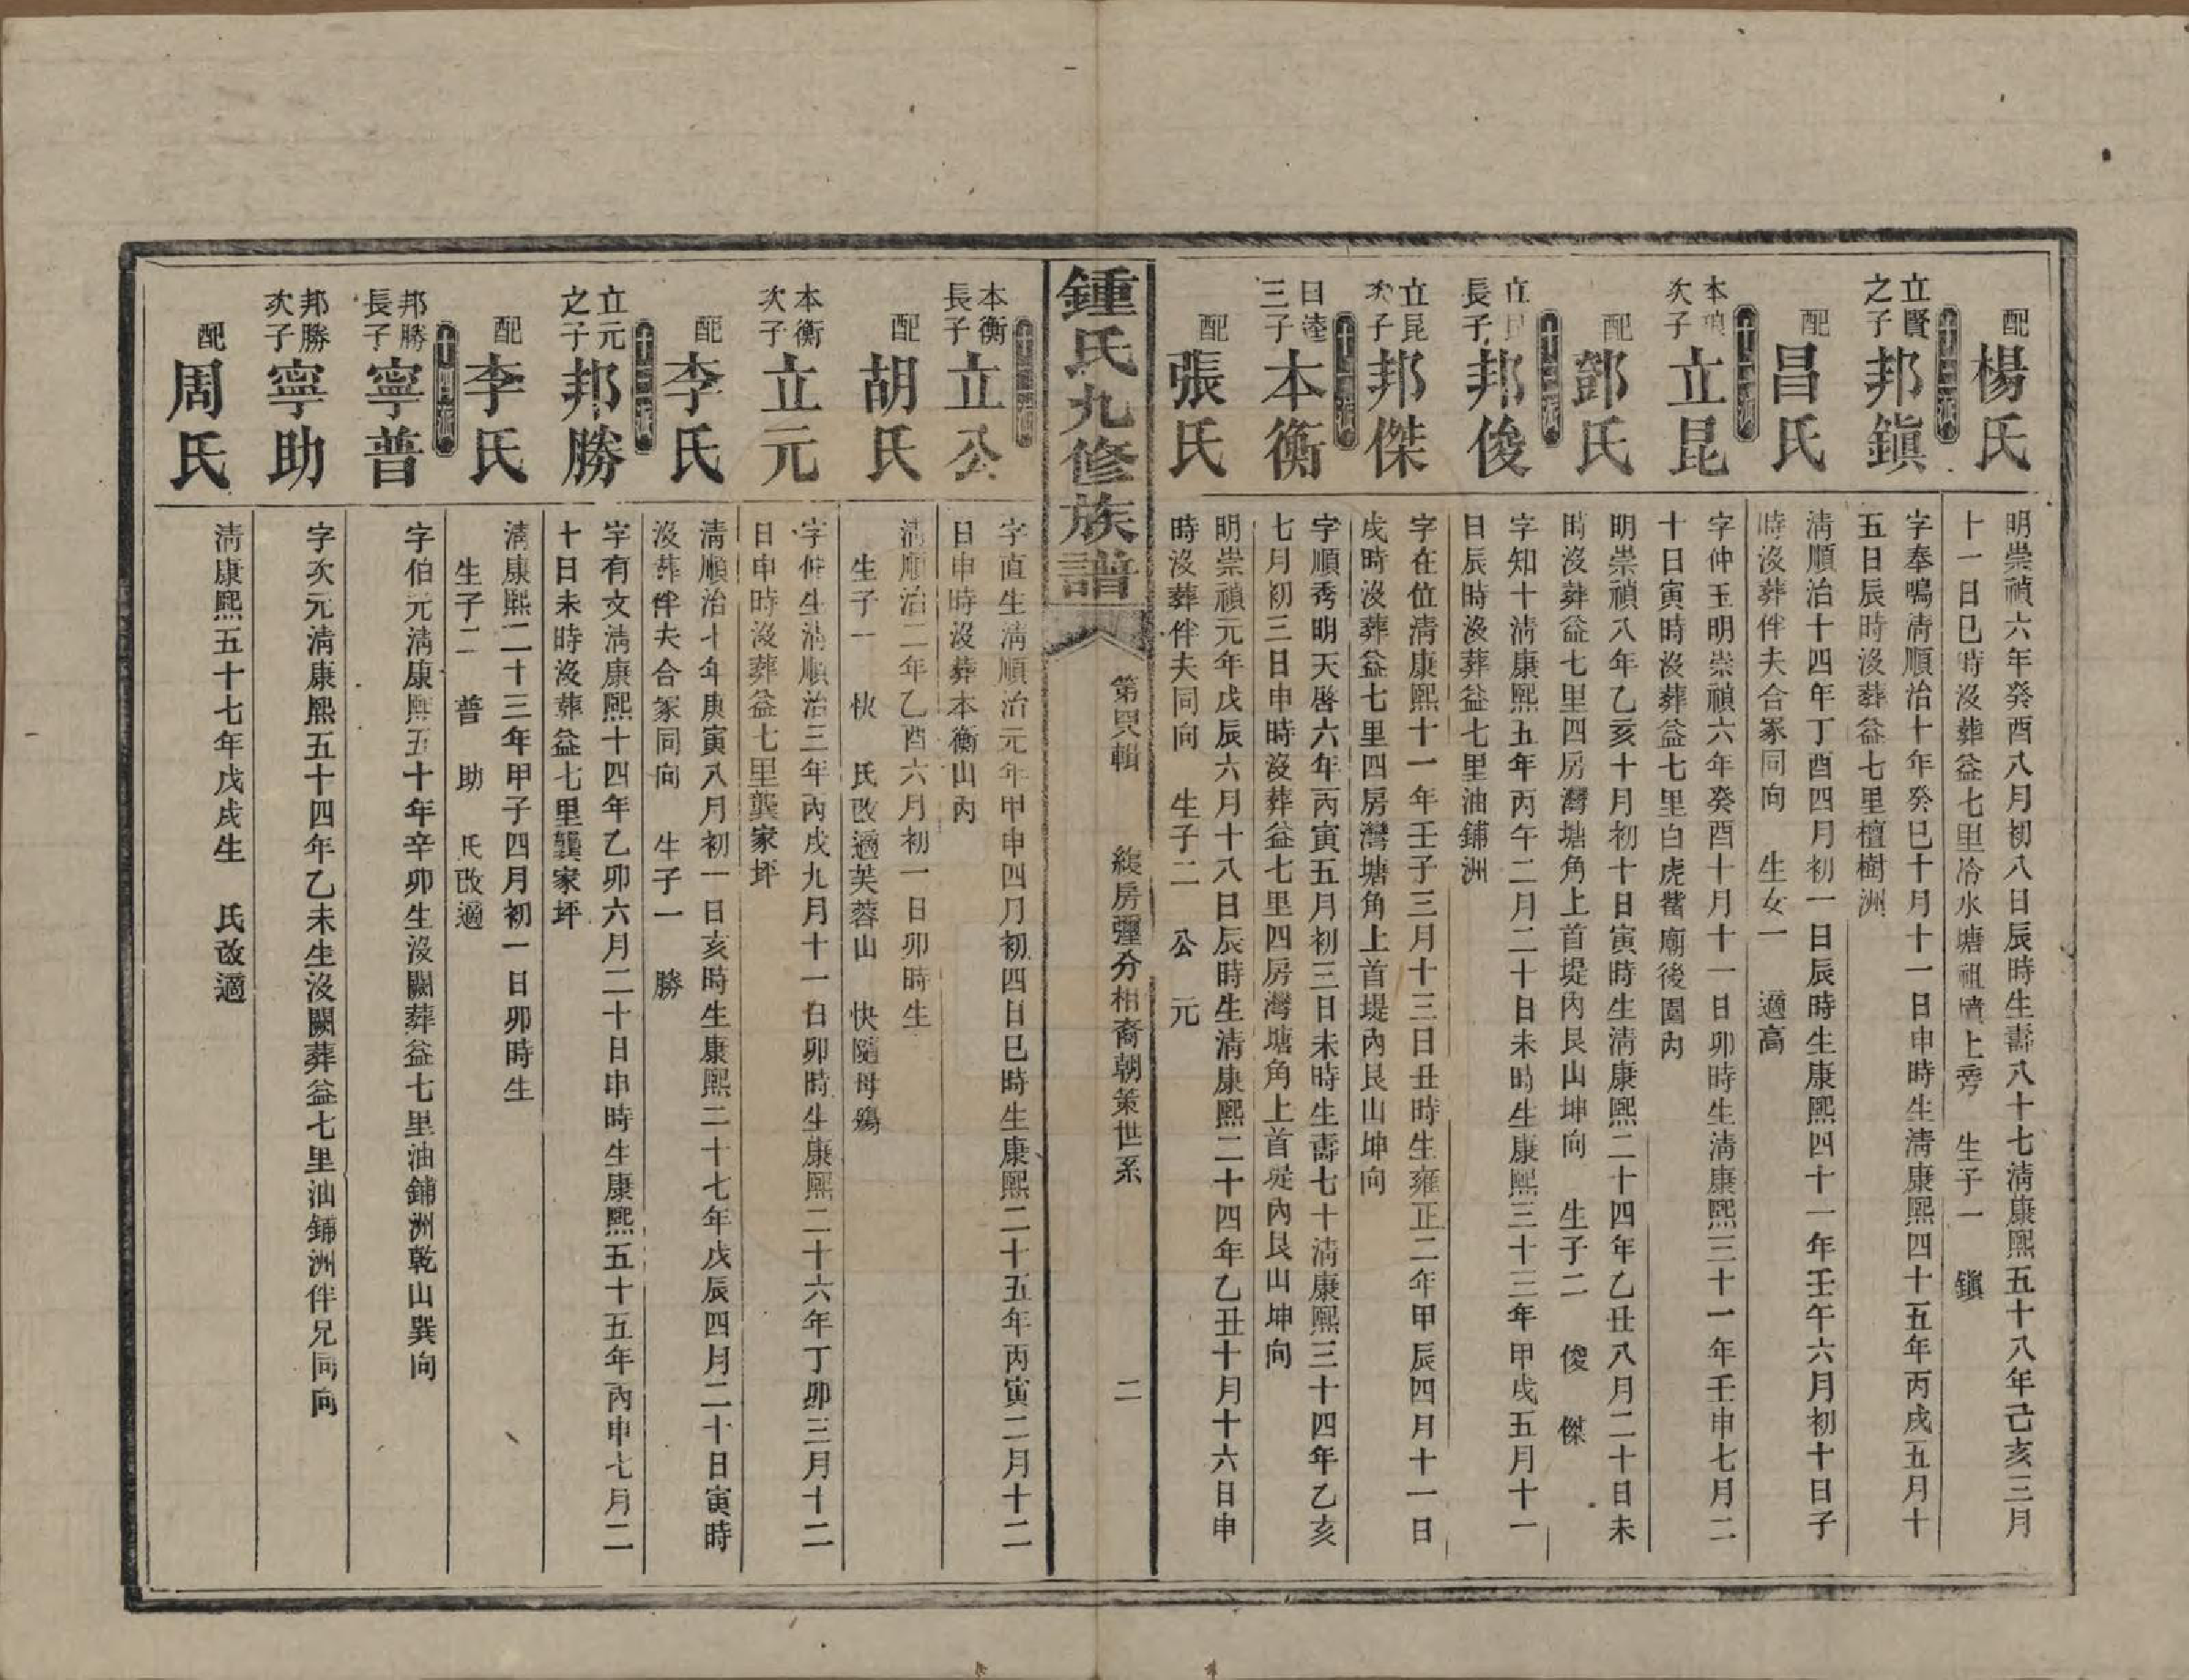 配
楊氏
明崇禎六年癸酉八月初八日辰時生壽八十七淸康熙五十八年己亥三月
十一日巳時沒葬益七里冷水塘祖墳上旁 生子一 鎭
十三派
立賢
之子
邦鎭
字奉鳴淸順治十年癸巳十月十一日申時生淸康熙四十五年丙戌五月十
五日辰時沒葬益七里檀樹洲
配
昌氏
淸順治十四年丁酉四月初一日辰時生康熙四十一年壬午六月初十日子
時沒葬伴夫合冢同向 生女一 適高
十二派
本
次子
立昆
字仲玉明崇禎六年癸酉十月十一日卯時生淸康熙三十一年壬申七月二
十日寅時沒葬益七里白虎觜廟後園內
配
鄧氏
明崇禎八年乙亥十月初十日寅時生淸康熙二十四年乙丑八月二十日未
時沒葬益七里四房灣塘角上首堤內艮山坤向 生子二 俊 傑
十三派
立昆
長子
邦俊
字知十淸康熙五年丙午二月二十日未時生康熙三十三年甲戌五月十一
日辰時沒葬益七里油鋪洲
立昆
次子
邦傑
字在位淸康熙十一年壬子三月十三日丑時生雍正二年甲辰四月十一日
戌時沒葬益七里四房灣塘角上首堤內艮山坤向
十一派
曰達
三子
本衡
字順秀明天啓六年丙寅五月初三日未時生壽七十淸康熙三十四年乙亥
七月初三日申時沒葬益七里四房灣塘角上首堤內艮山坤向
配
張氏
明崇禎元年戊辰六月十八日辰時生淸康熙二十四年乙丑十月十六日申
時沒葬伴夫同向 生子二 公 元
鍾氏九修族譜
第四輯
綬房彌分相裔朝策世系
二
十二派
本衡
長子
立公
字直生淸順治元年甲申四月初四日巳時生康熙二十五年丙寅二月十二
日申時沒葬本衡山內
配
胡氏
淸順治二年乙酉六月初一日卯時生
生子一 快 氏改適芙蓉山 快隨母殤
本衡
次子
立元
字仲生淸順治三年丙戌九月十一日卯時生康熙二十六年丁卯三月十二
日申時沒葬益七里龔家坪
配
李氏
淸順治七年庚寅八月初一日亥時生康熙二十七年戊辰四月二十日寅時
沒葬伴夫合冢同向 生子一 勝
十三派
立元
之子
邦勝
字有文淸康熙十四年乙卯六月二十日申時生康熙五十五年丙申七月二
十日未時沒葬益七里龔家坪
配
李氏
淸康熙二十三年甲子四月初一日卯時生
生子二 普 助 氏改適
十四派
邦勝
長子
寧普
字伯元淸康熙五十年辛卯生沒闕葬益七里油鋪洲乾山巽向
邦勝
次子
寧助
字次元淸康熙五十四年乙未生沒闕葬益七里油鋪洲伴兄同向
配
周氏
淸康熙五十七年戊戌生 氏改適